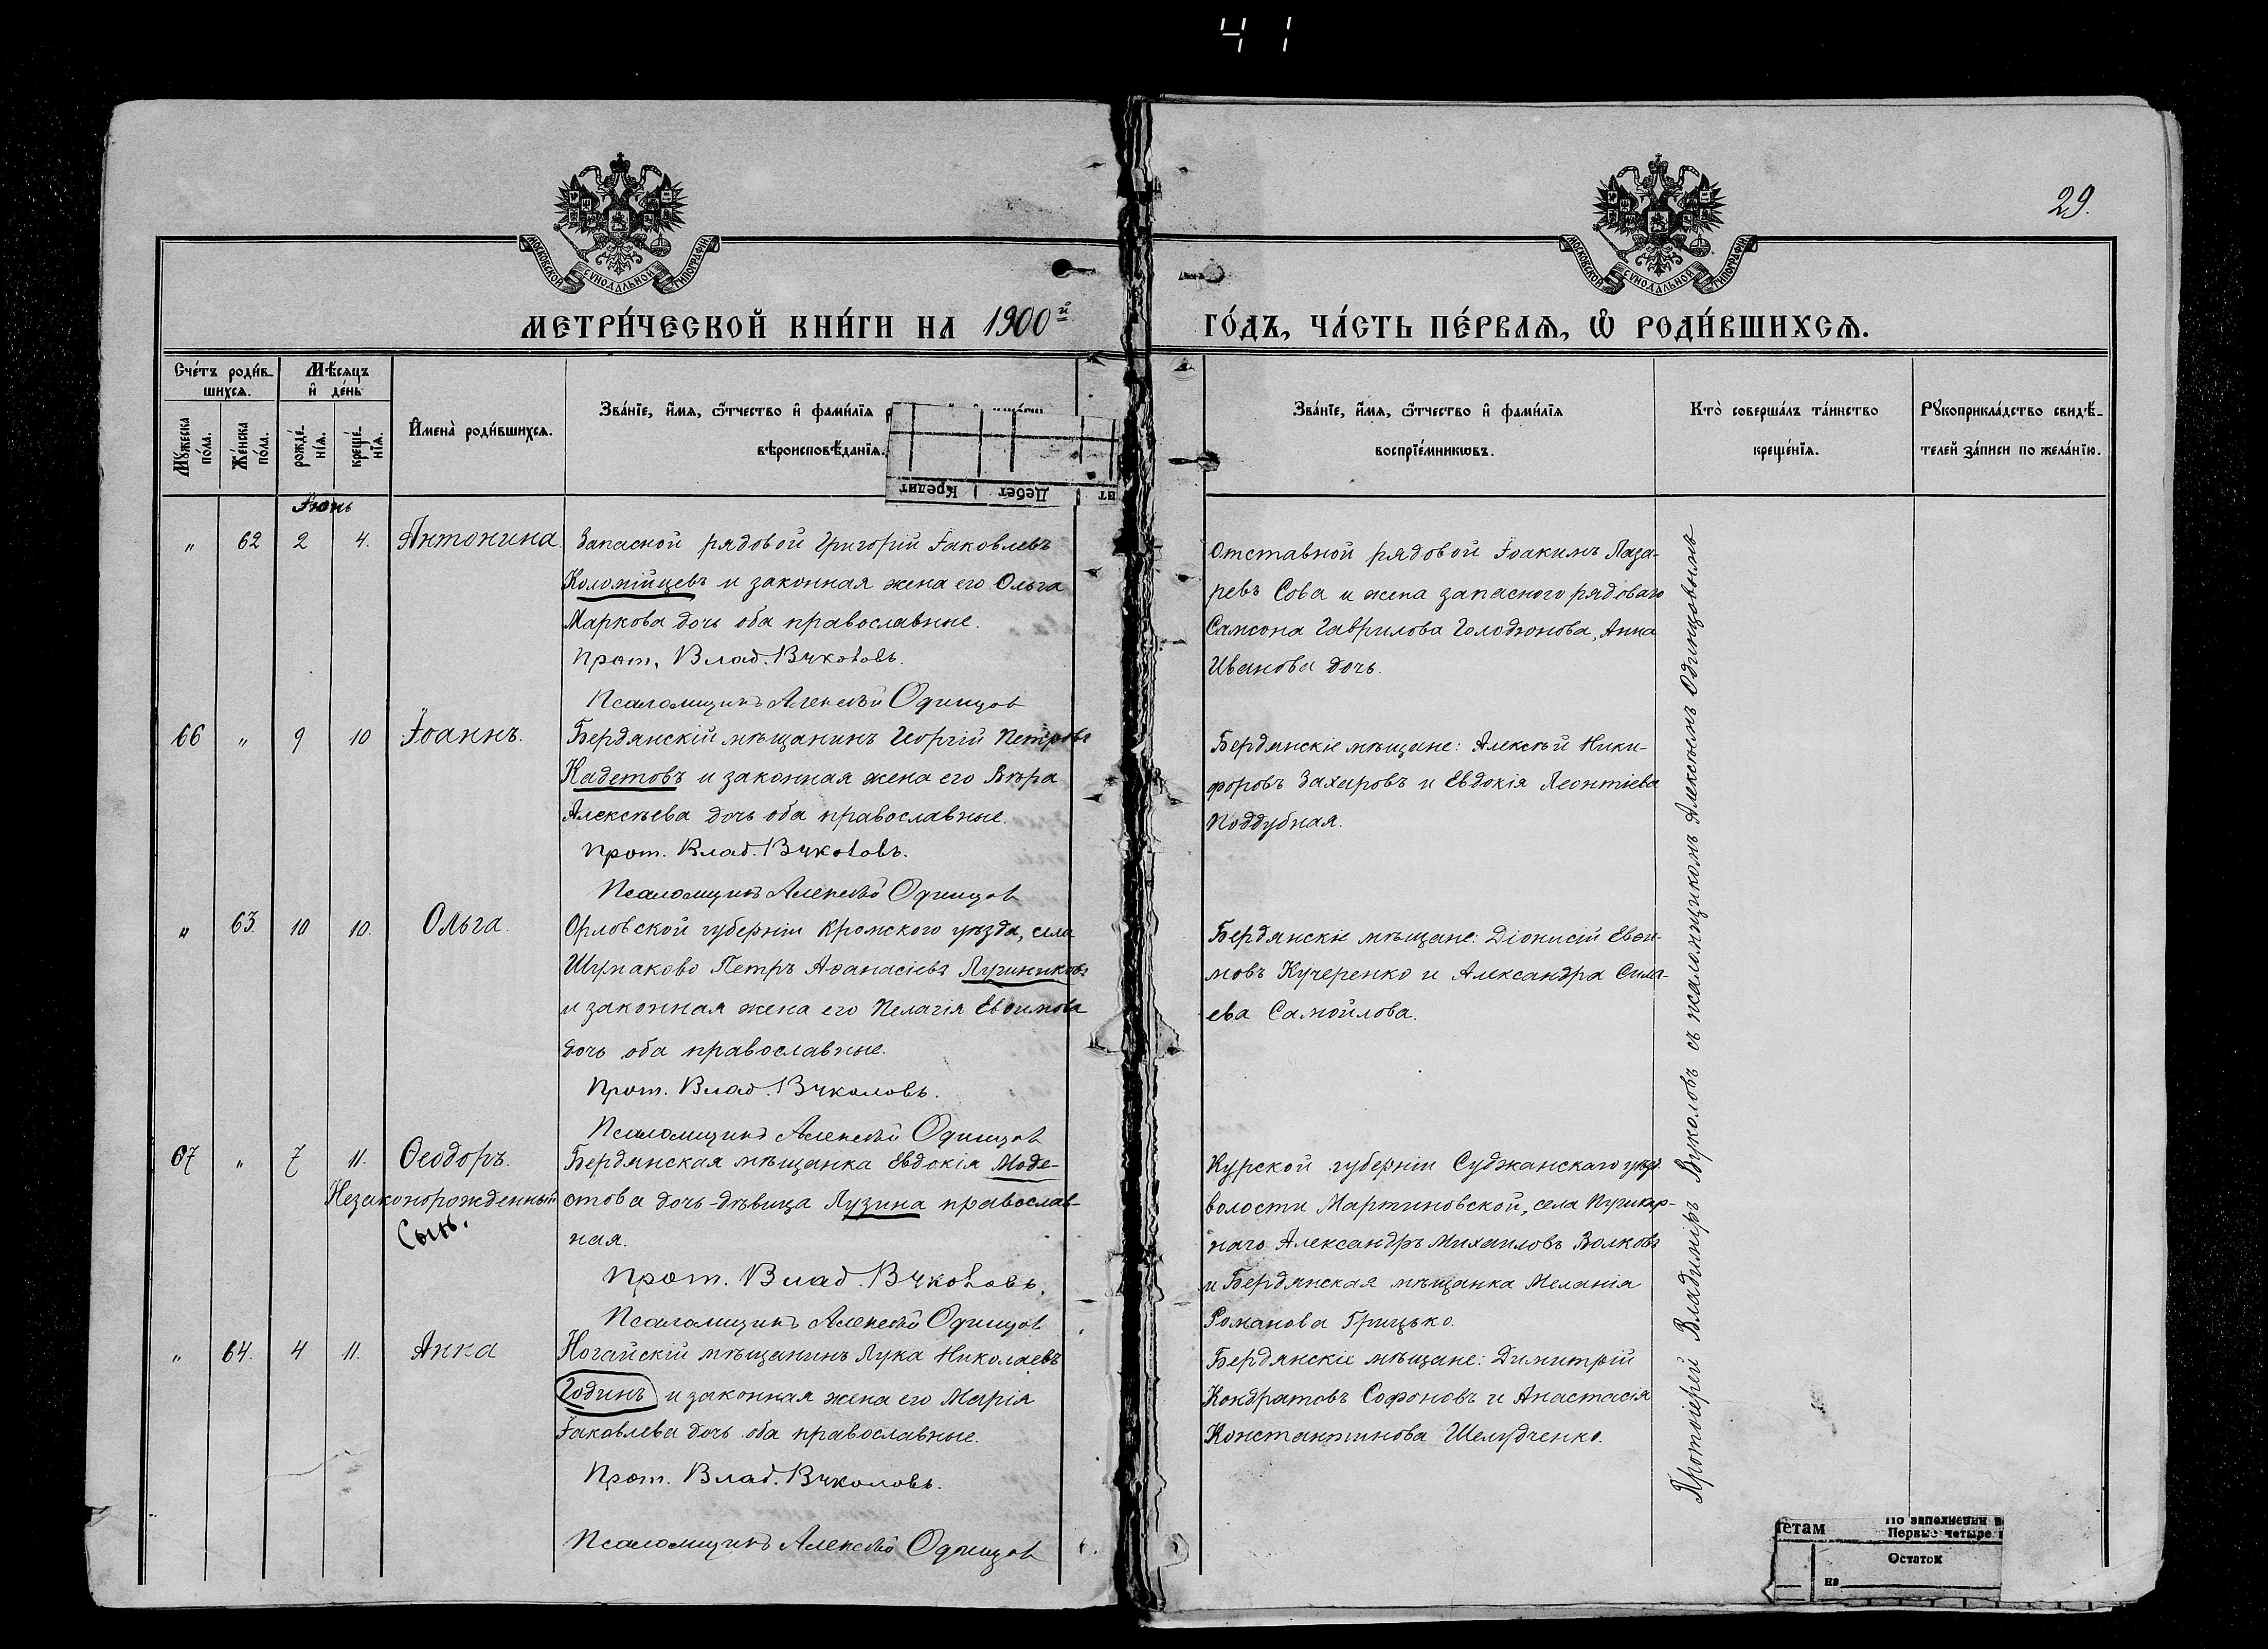 41
29.
МОСКОВСКОЙ СѴНОДАЛЬНОЙ ТИПОГРАФІИ
МОСКОВСКОЙ СѴНОДАЛЬНОЙ ТИПОГРАФІИ
МЕТРИ́ЧЕСКОЙ КНИ́ГИ НА 1900й
ГО́ДЪ, ЧА́СТЬ ПЕ́РВАѦ, Ѽ РОДИ́ВШИХСѦ.
Сче́тъ роди́в-
шихсѧ.
Мѣ́сѧцъ
и҆ де́нь
Мꙋ́жеска
по́ла.
Же́нска
по́ла.
рожде́-
нїѧ.
креще́-
нїѧ.
И҆мена̀ роди́вшихсѧ.
Зва́нїе, и҆́мѧ, ѻ҆́тчество и҆ фами́лїѧ
вѣроисповѣ́данїѧ.
Кредит Дебет
Зва́нїе, и҆́мѧ, ѻ҆́тчество и҆ фами́лїѧ
воспрїе́мникѡвъ.
Кто̀ соверша́лъ та́инство
креще́нїѧ.
Рꙋкоприкла́дство свидѣ́-
телей за́писи по жела́нїю.
Іюнь
" 62 2 4. Антонина. Запасной рядовой Григорій Іаковлевъ
Коломійцевъ и законная жена его Ольга
Маркова дочь оба православные.
Прот. Влад. Вуколовъ.
Псаломщикъ Алексѣй Одинцов
Отставной рядовой Іоакимъ Лаза-
ревъ Сова и жена запасного рядоваго
Самсона Гаврилова Голодюнова, Анна
Иванова дочь.
66 " 9 10 Іоаннъ. Бердянскій мѣщанинъ Георгій Петровъ
Кадетовъ и законная жена его Вѣра
Алексѣева дочь оба православные.
Прот. Влад. Вуколовъ.
Псаломщикъ Алексѣй Одинцов
Бердянскіе мѣщане: Алексѣй Ники-
форовъ Захаровъ и Евдокія Леонтіева
Поддубная.
" 63. 10 10. Ольга. Орловской губерніи Кромского уѣзда, села
Шумаково Петръ Аѳанасіевъ Лучниковъ
и законная жена его Пелагія Евѳимова
дочь оба православные.
Прот. Влад. Вуколовъ.
Псаломщикъ Алексѣй Одинцов
Бердянскіе мѣщане: Діонисій Евѳи-
мовъ Кучеренко и Александра Сила-
ева Самойлова.
67 " 7 11. Ѳеодоръ. Бердянская мѣщанка Евдокія Моде-
Незаконорожденный стова дочь-дѣвица Лузина православ-
Сынъ. ная.
Прот. Влад. Вуколовъ.
Псаломщикъ Алексѣй Одинцов
Курской губерніи Суджанскаго уѣзд.
волости Мартиновской, села Пушкар-
наго Александръ Михаиловъ Волковъ
и Бердянская мѣщанка Меланія
Романова Грицько.
" 64. 4 11. Анна Ногайскій мѣщанинъ Лука Николаевъ
Годинъ и законная жена его Марія
Іаковлева дочь оба православные.
Прот. Влад. Вуколовъ.
Псаломщикъ Алексѣй Одинцов
Бердянскіе мѣщане: Димитрій
Кондратовъ Софоновъ и Анастасія
Константинова Шелудченко.
Протоіерей Владиміръ Вуколовъ съ псаломщикомъ Алексѣемъ Одинцовымъ
По заполнении
Первые четыре
Остаток
на